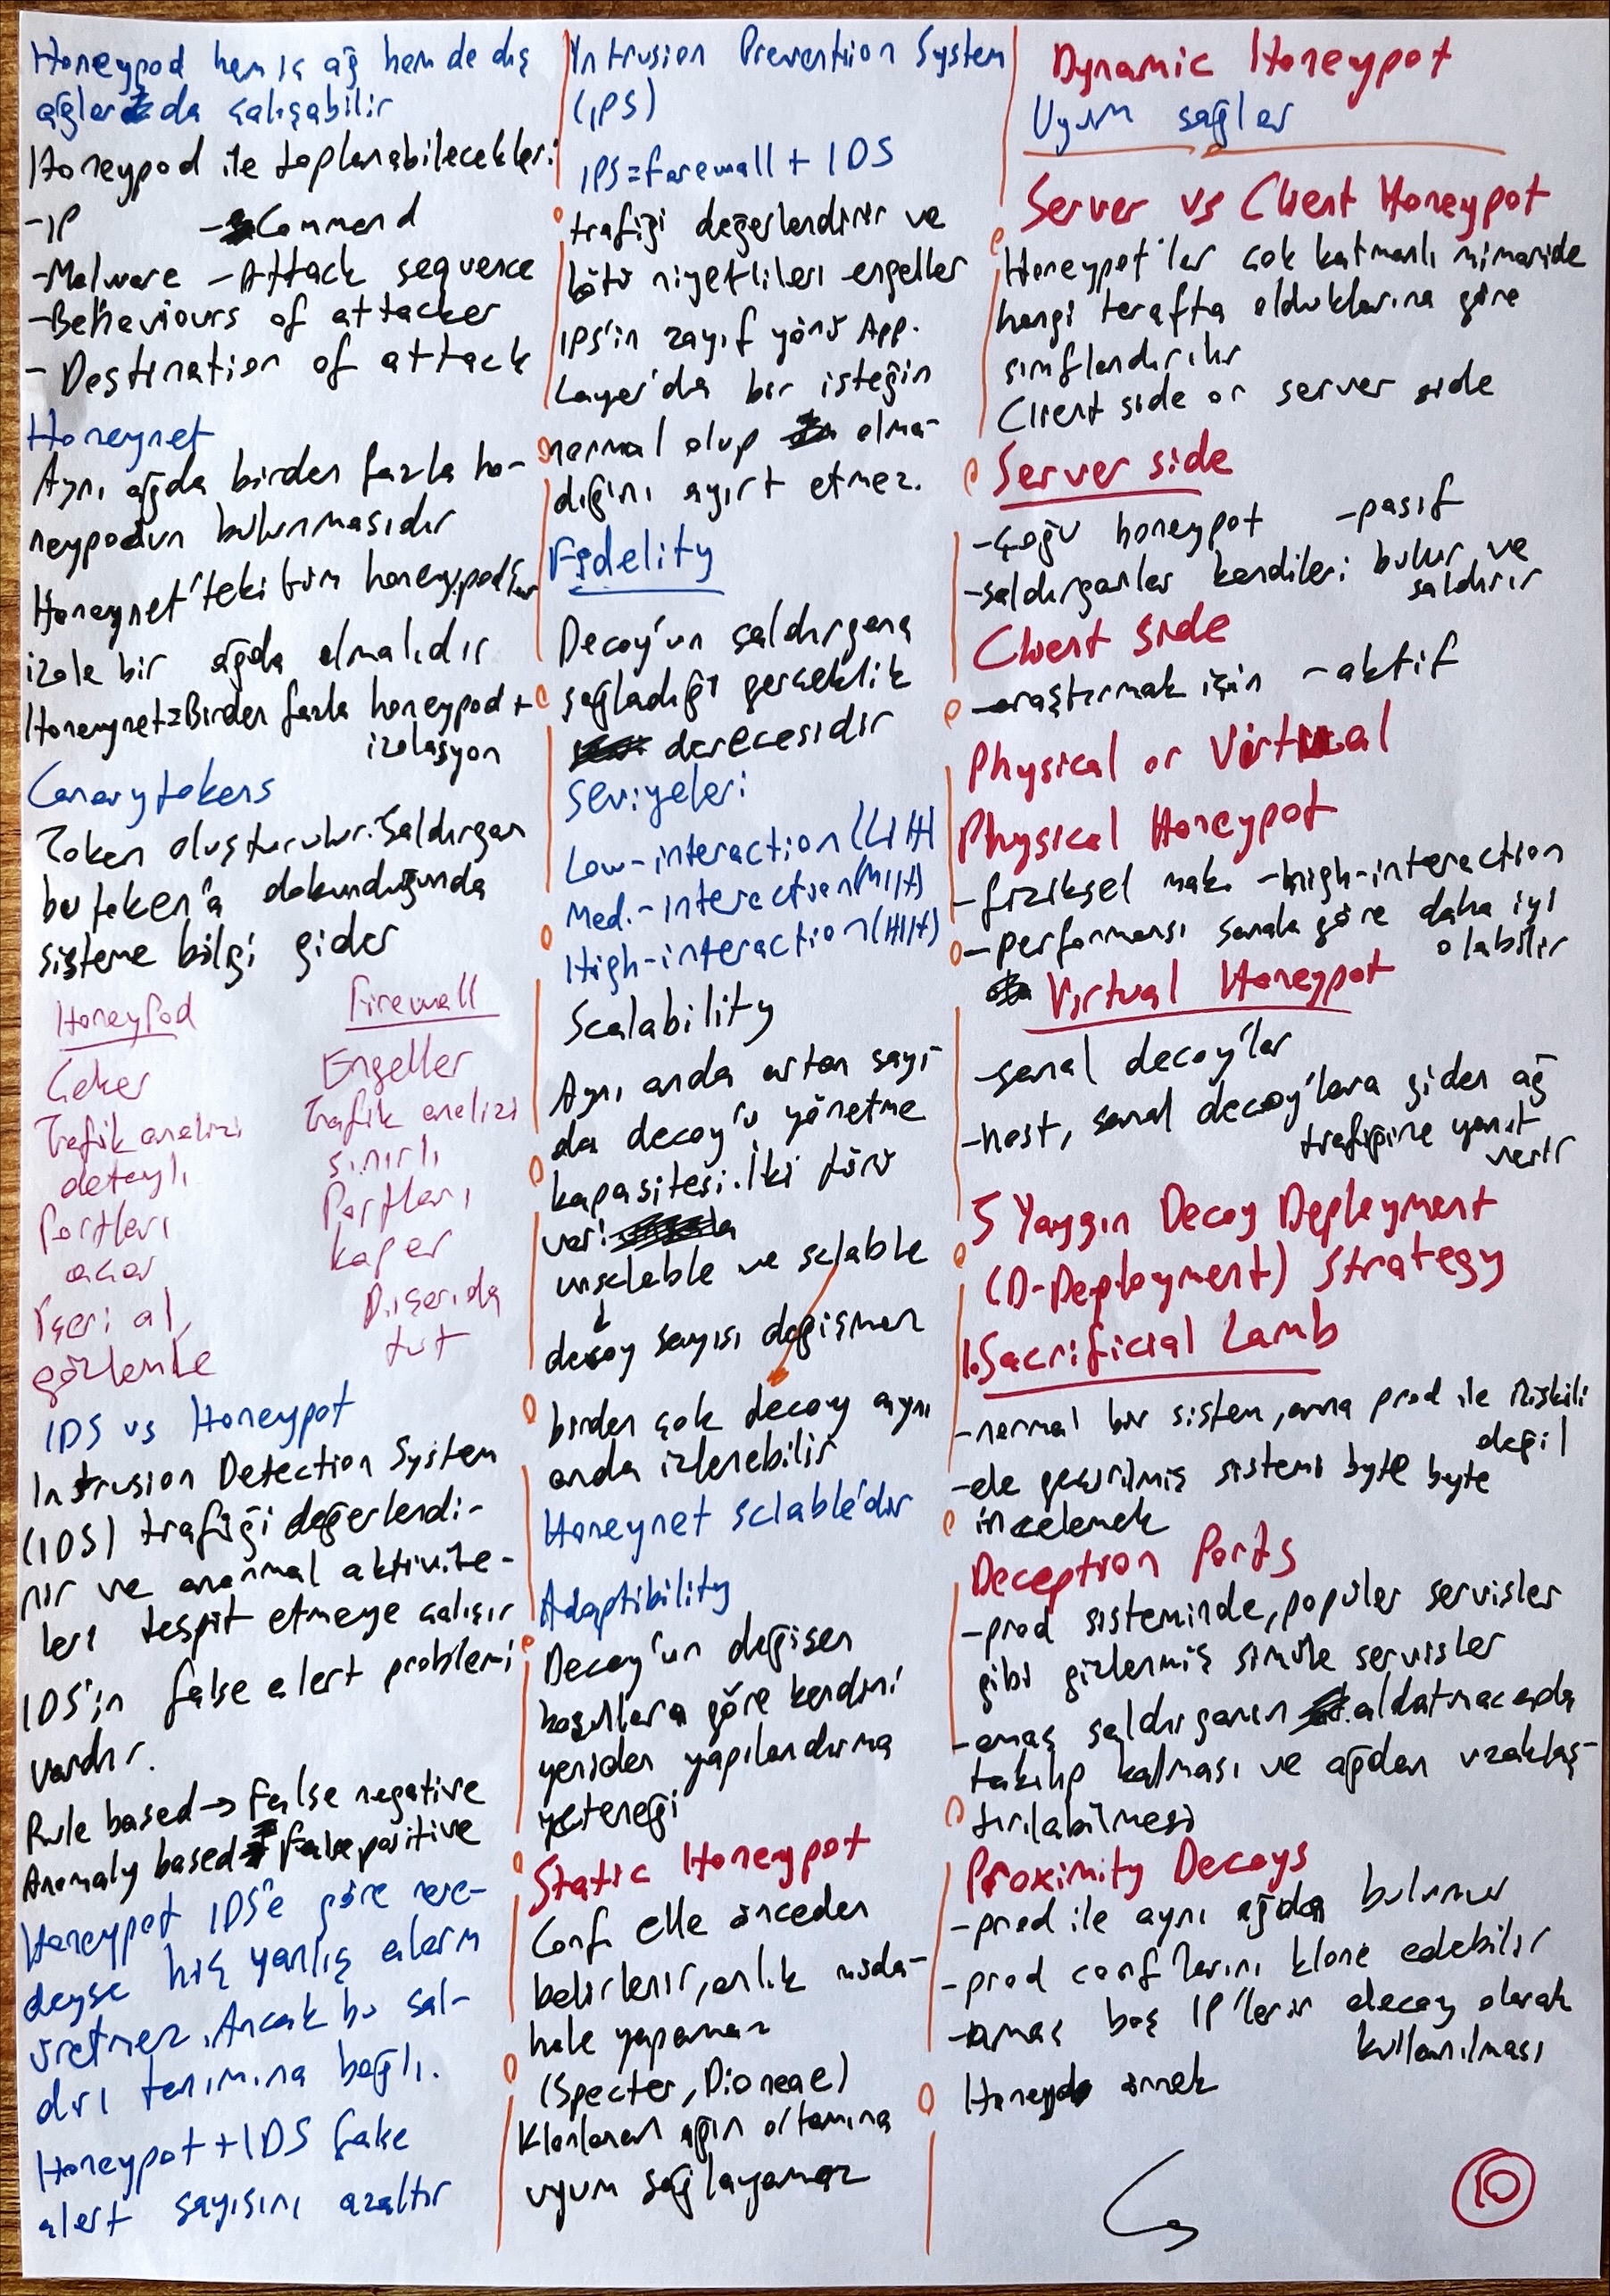 Honeypod hem iç ağ hem de dış
ağlarda çalışabilir
Honeypod ile toplanabilecekler:
-IP -Command
-Malware -Attack sequence
-Behaviours of attacker
- Destination of attack
Honeynet
Aynı ağda birden fazla ho-
neypodun bulunmasıdır
Honeynet'teki tüm honeypodlar
izole bir ağda olmalıdır
Honeynet=Birden fazla honeypod +
izolasyon
Canarytokens
Token oluşturulur. Saldırgan
bu token'a dokunduğunda
sisteme bilgi gider
HoneyPod Firewall
Çeker Engeller
Trafik analizi Trafik analizi
detaylı sınırlı
Portları Portları
açar kapar
İçeri al, Dışarıda
gözlemle tut
IDS vs Honeypot
Intrusion Detection System
(IDS) trafiği değerlendi-
rir ve anormal aktivite-
leri tespit etmeye çalışır
IDS'in false alert problemi
vardır.
Rule based → False negative
Anomaly based → false positive
Honeypot IDS'e göre nere-
deyse hiç yanlış alarm
üretmez. Ancak bu sal-
dırı tanımına bağlı.
Honeypot + IDS fake
alert sayısını azaltır
Intrusion Prevention System
(IPS)
IPS = farewall + IDS
trafiği değerlendirir ve
kötü niyetlileri engeller
IPS'in zayıf yönü App.
Layer'da bir isteğin
normal olup olma-
dığını ayırt etmez.
Fidelity
Decoy'un saldırgana
sağladığı gerçeklik
derecesidir
Seviyeleri
Low-interaction (LIH)
Med.-interaction (MIH)
High-interaction (HIH)
Scalability
Aynı anda artan sayı-
da decoy'u yönetme
kapasitesi. İki türü
var:
unsclable ve sclable
decoy sayısı değişmez
birden çok decoy aynı
anda izlenebilir
Honeynet sclable'dır
Adaptibility
Decoy'un değişen
koşullara göre kendini
yeniden yapılandırma
yeteneği
Static Honeypot
Conf. elle önceden
belirlenir, anlık müda-
hale yapamaz
(Specter, Dioneae)
Klonlanan ağın ortamına
uyum sağlayamaz
Dynamic Honeypot
Uyum sağlar
Server vs Client Honeypot
Honeypot'lar çok katmanlı mimaride
hangi tarafta olduklarına göre
sınıflandırılır
Client side or server side
Server side
-çoğu honeypot -pasif
-saldırganlar kendileri bulur ve
saldırır
Client side
-araştırmak için -aktif
Physical or Virtual
Physical Honeypot
-fiziksel mak. -high-interaction
-performansı sanala göre daha iyi
olabilir
Virtual Honeypot
-sanal decoy'lar
-host, sanal decoy'lara giden ağ
trafiğine yanıt
verir
5 Yaygın Decoy Deployment
(D-Deployment) Strategy
1.Sacrificial Lamb
-normal bir sistem, ama prod ile ilişkili
değil
-ele geçirilmiş sistemi byte byte
incelemek
Deception Ports
-prod sisteminde, popüler servisler
gibi gizlenmiş simüle servisler
-amaç saldırganın aldatmacada
takılıp kalması ve ağdan uzaklaş-
tırılabilmesi
Proximity Decoys
-prod ile aynı ağda bulunur
-prod conf'larını klone edebilir
-amaç boş IP'lerin decoy olarak
kullanılması
Honeyd örnek
10